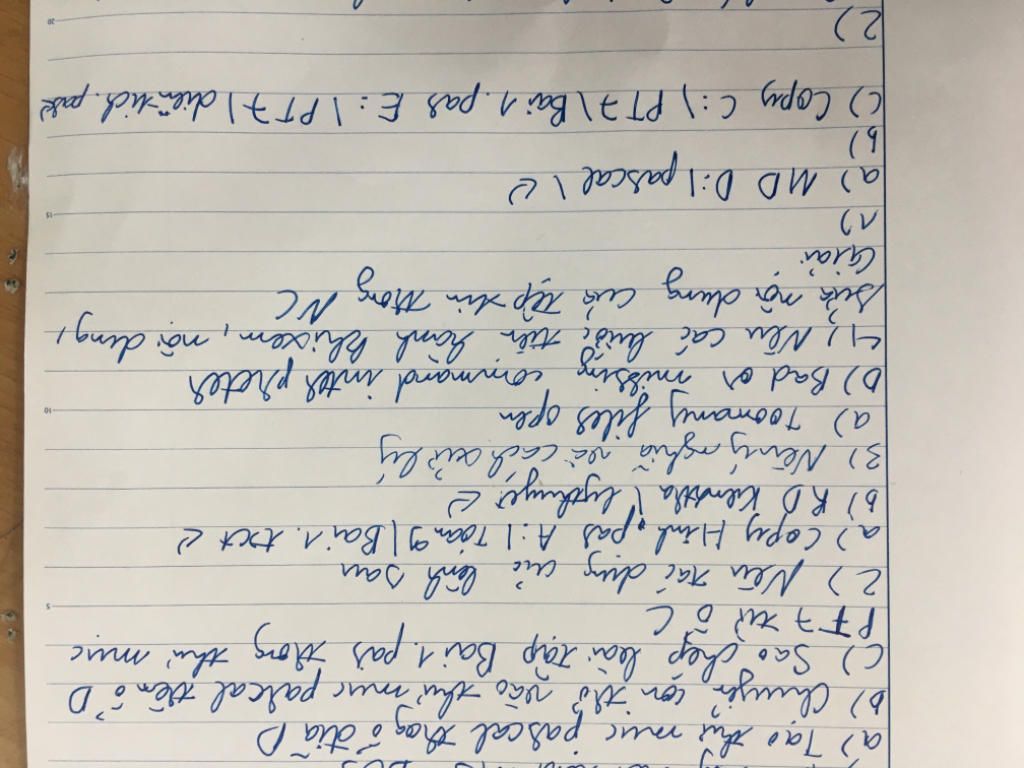 DOS
a) Tạo thư mục pascal trong ổ đĩa D
b) Chuyển con trỏ vào thư mục pascal trên ổ D
c) Sao chép bài tập Bai1.pas trong thư mục
PT7 từ ổ C
2) Nêu tác dụng của lệnh sau
a) Copy Hinh.pas A:\Toán9\Bai1.txt ↵
b) RD Kiemtra\lythuyet ↵
3) Nêu ý nghĩa và cách xử lý
a) Toomany files open
b) Bad or missing command interpreter
4) Nêu các bước tiến hành khi xem, nội dung,
sửa nội dung của tệp tin trong NC
Giải
1)
a) MD D:\pascal\ ↵
b)
c) Copy C:\PT7\Bai1.pas E:\PT7\dientich.pas
2)
5
10
15
20